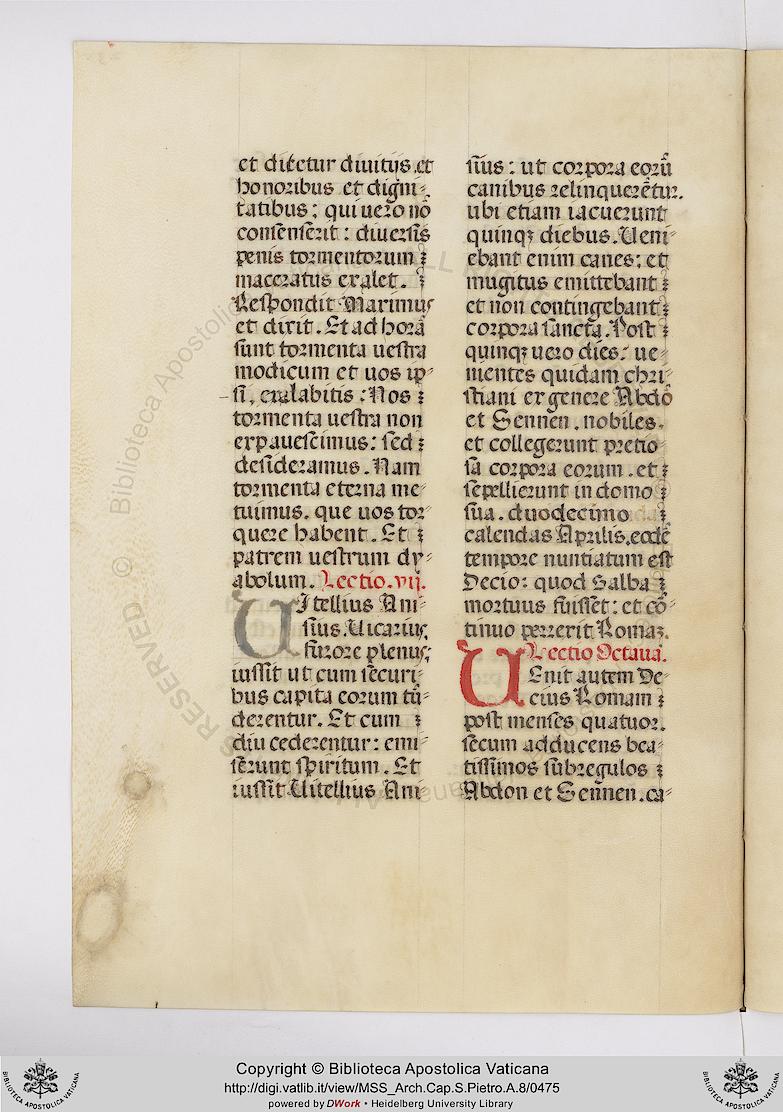 et ditetur diuitijs et
honoribus et digni-
tatibus; qui uero nō
consenserit: diuersis
penis tormentorum
maceratus exalet.
Respondit Marimus
et dixit. Et ad horā
sunt tormenta uestra
modicum et uos ip-
si, exalabitis: Nos
tormenta uestra non
expauescimus: sed
desideramus. Nam
tormenta eterna me-
tuimus. que uos tor-
quere habent. Et
patrem uestrum dy-
abolum. Lectio. vij.
Uitellius Ani-
sius. Uicarius,
furore plenus;
iussit ut cum securi-
bus capita eorum tū-
derentur. Et cum
diu cederentur: emi-
serunt spiritum. Et
iussit Uitellius Ani-
sius: ut corpora eorū
canibus relinquerētur.
ubi etiam iacuerunt
quinqꝫ diebus. Ueni-
ebant enim canes: et
mugitus emittebant
et non contingebant
corpora sancta. Post
quinqꝫ uero dies: ue-
nientes quidam chri-
stiani ex genere Abdō
et Sennen. nobiles.
et collegerunt pretio-
sa corpora eorum. et
sepellierunt in domo
sua. duodecimo
calendas Aprilis. eodē
tempore nuntiatum est
Decio: quod Galba
mortuus fuisset: et cō-
tinuo perrexit Romaꝫ.
Lectio Octaua.
Uenit autem De-
cius Romam
post menses quatuor.
secum adducens bea-
tissimos subregulos
Abdon et Sennen. ca-
Copyright © Biblioteca Apostolica Vaticana
http://digi.vatlib.it/view/MSS_Arch.Cap.S.Pietro.A.8/0475
powered by DWork • Heidelberg University Library
BIBLIOTECA APOSTOLICA VATICANA
BIBLIOTECA APOSTOLICA VATICANA